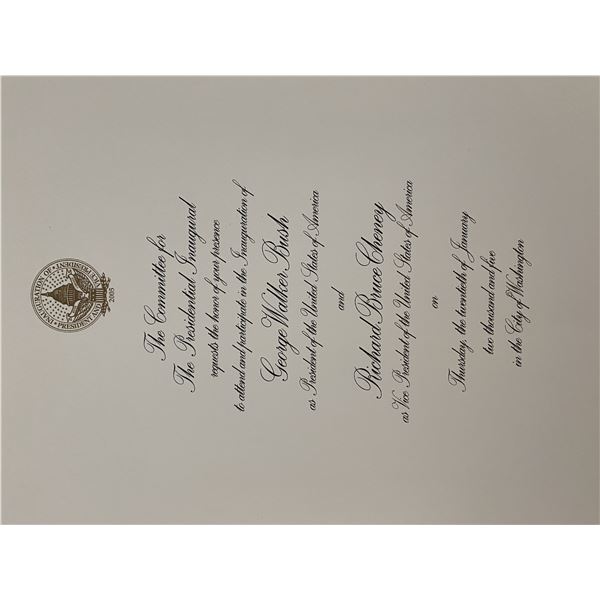 INAUGURATION OF PRESIDENT AND VICE PRESIDENT
2005
The Committee for
The Presidential Inaugural
requests the honor of your presence
to attend and participate in the Inauguration of
George Walker Bush
as President of the United States of America
and
Richard Bruce Cheney
as Vice President of the United States of America
on
Thursday, the twentieth of January
two thousand and five
in the City of Washington